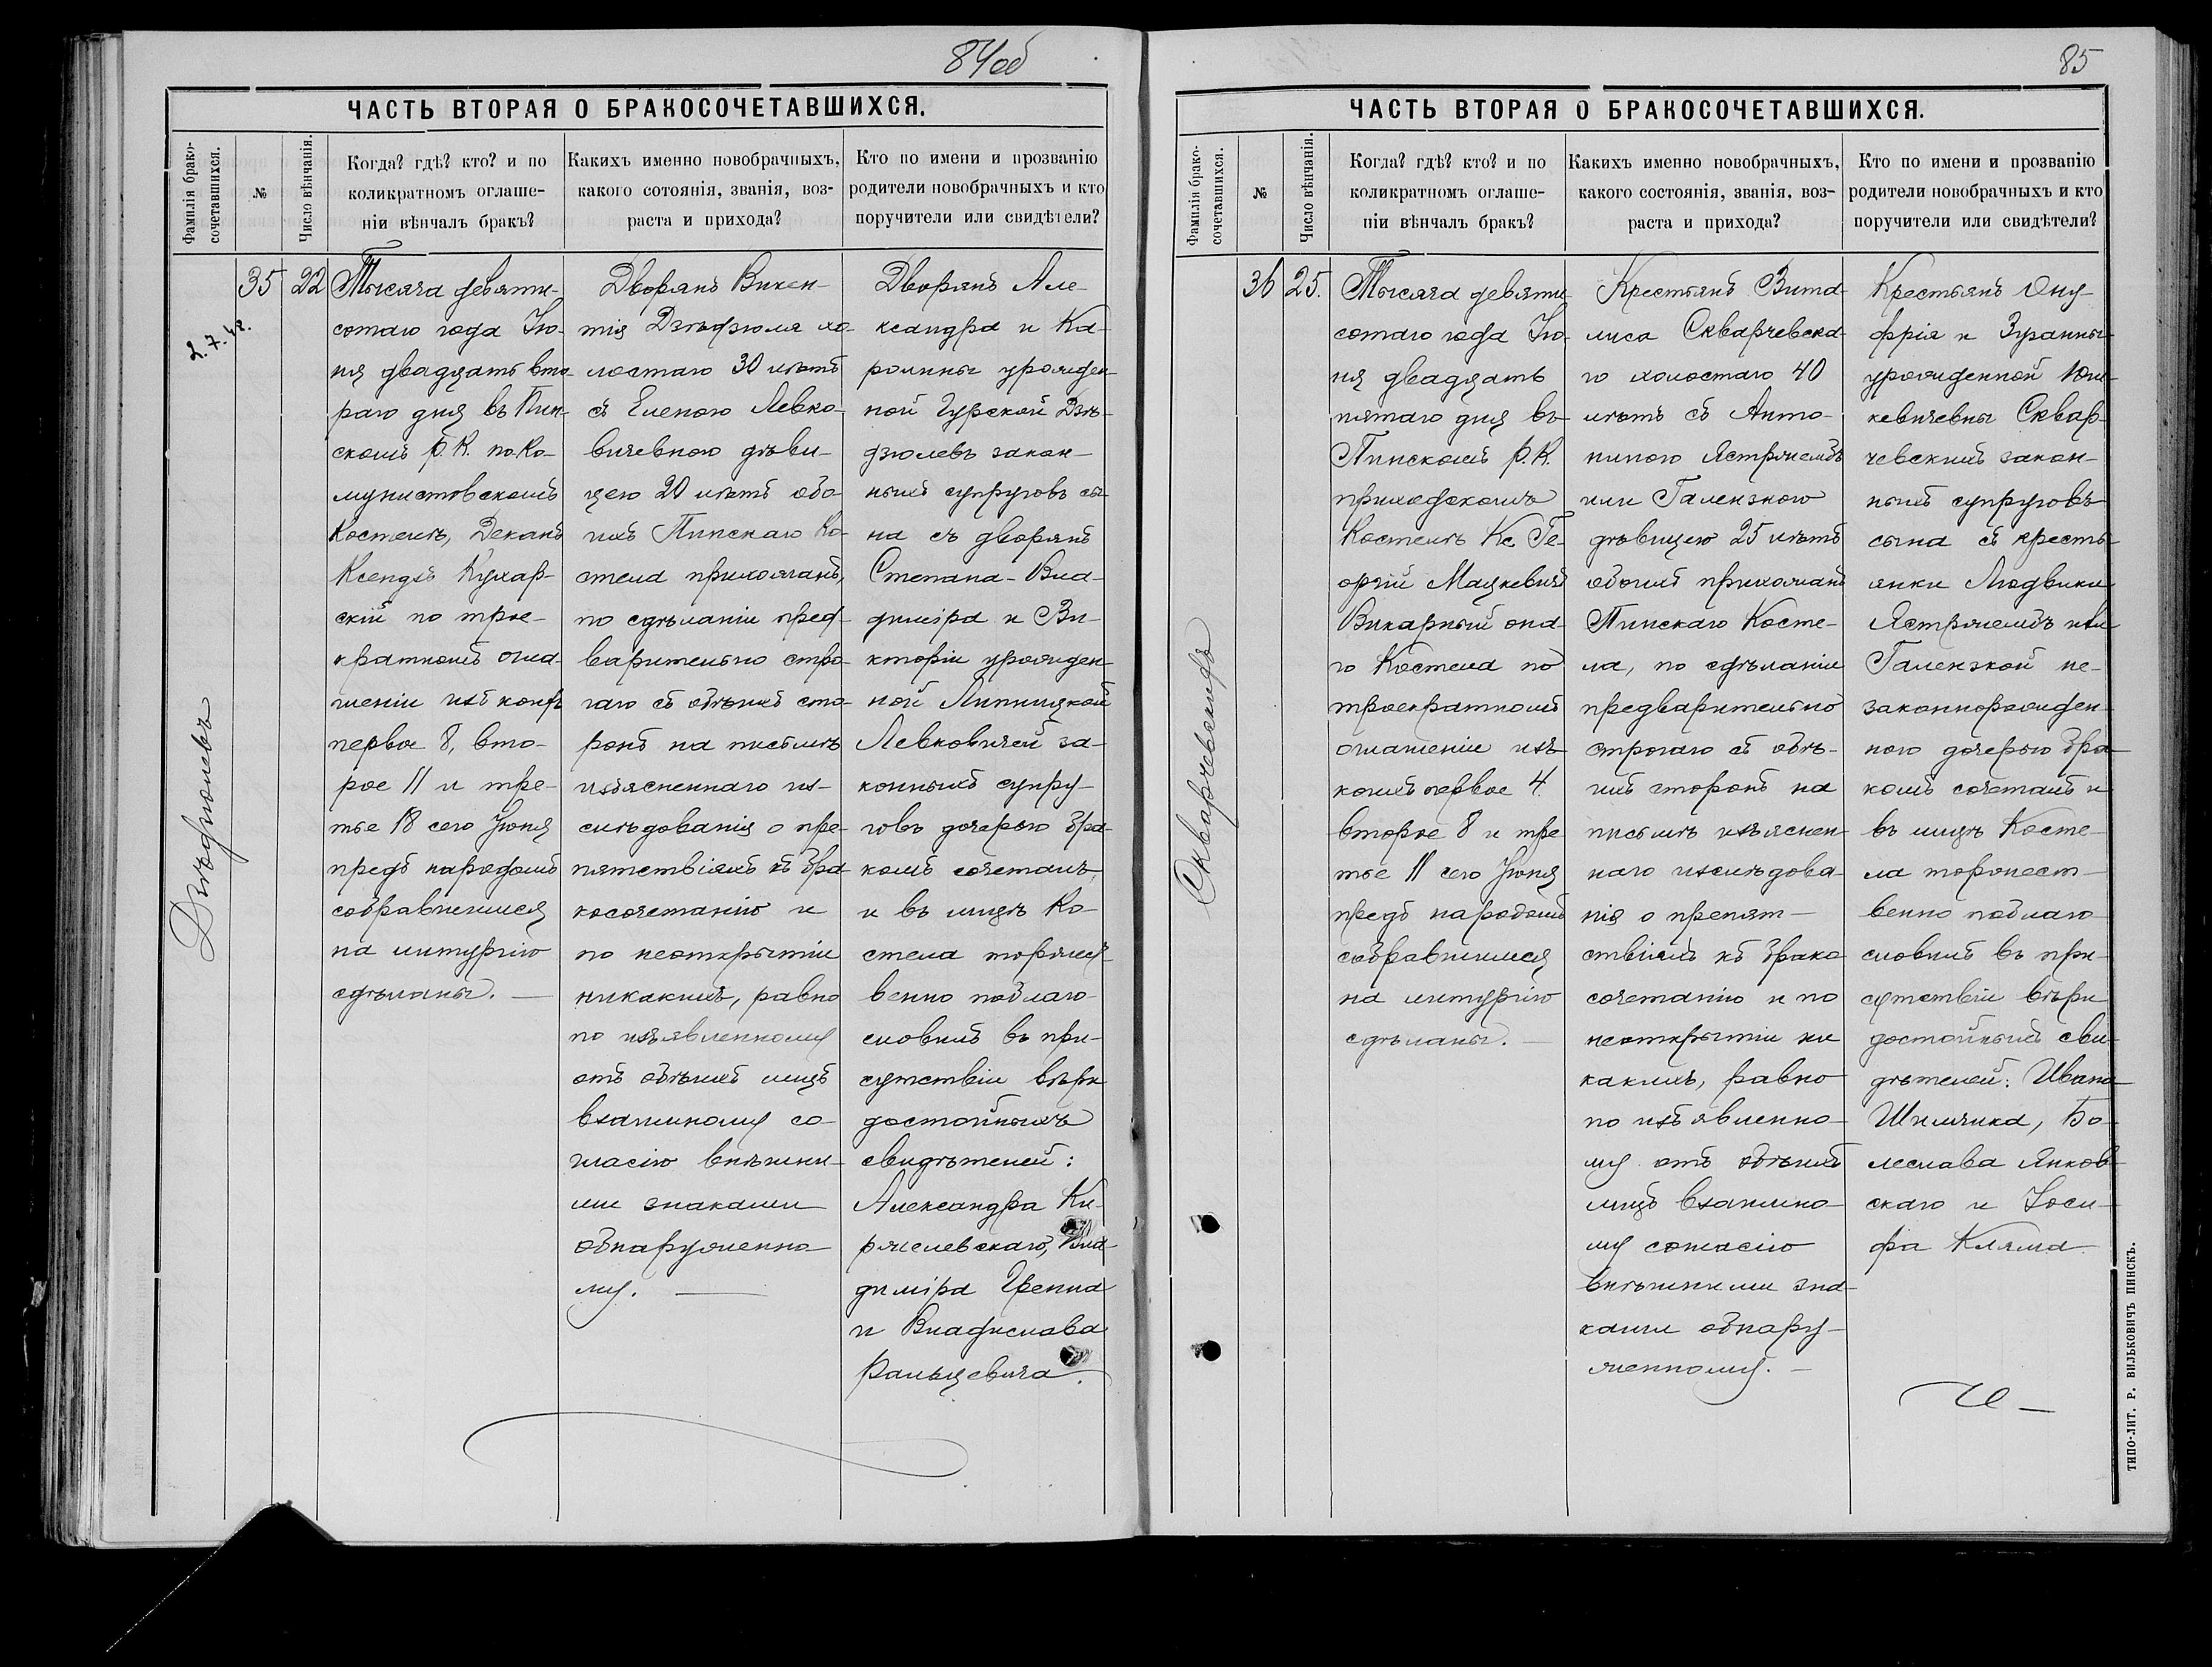 84об
ЧАСТЬ ВТОРАЯ О БРАКОСОЧЕТАВШИХСЯ.
Фамилія брако-
сочетавшихся.
№
Число вѣнчанія.
Когда? гдѣ? кто? и по
коликратномъ оглаше-
ніи вѣнчалъ бракъ?
Какихъ именно новобрачныхъ,
какого сотоянія, званія, воз-
раста и прихода?
Кто по имени и прозванію
родители новобрачныхъ и кто
поручители или свидѣтели?
35
22
Тысяча девяти-
сотаго года Ію-
ня двадцать вто-
раго дня въ Пин-
скомъ Р. К. по-Ко-
мунистовскомъ
Костелѣ, Деканъ
Ксендзъ Кухар-
скій по трое-
кратномъ огла-
шеніи изъ коихъ
первое 8, вто-
рое 11 и тре-
тье 18 сего Іюня
предъ народомъ
собравшимся
на литургію
сдѣланы. —
Дворянъ Викен-
тія хо-
лостаго 30 лѣтъ
съ Еленою Левко-
вичевною дѣви-
цею 20 лѣтъ обо-
ихъ Пинскаго Ко-
стела прихожанъ,
по сдѣланіи пред-
варительно стро-
гаго съ обѣихъ сто-
ронъ на письмѣ
изъясненнаго из-
слѣдованія о пре-
пятствіяхъ къ бра-
косочетанію и
по неоткрытіи
никакихъ, равно
по изъявленному
отъ обѣихъ лицъ
взаимному со-
гласію внѣшни-
ми знаками
обнаруженно-
му. —
Дворянъ Але-
ксандра и Ка-
ролины урожден-
ной Гурской Дзѣ-
дзюлевъ закон-
ныхъ супруговъ сы-
на съ дворянъ
Степана-Вла-
диміра и Ви-
кторіи урожден-
ной Липницкой
Левковичей за-
конныхъ супру-
говъ дочерью бра-
комъ сочеталъ
и въ лицѣ Ко-
стела торжест-
венно поблаго-
словилъ въ при-
сутствіи вѣро-
достойныхъ
свидѣтелей:
Александра Ки-
ржелевскаго, Вла-
диміра
и Владислава
Рамьцевича.
85
ЧАСТЬ ВТОРАЯ О БРАКОСОЧЕТАВШИХСЯ.
Фамилія брако-
сочетавшихся.
№
Число вѣнчанія.
Когда? гдѣ? кто? и по
коликратномъ оглаше-
ніи вѣнчалъ бракъ?
Какихъ именно новобрачныхъ,
какого состоянія, званія, воз-
раста и прихода?
Кто по имени и прозванію
родители новобрачныхъ и кто
поручители или свидѣтели?
Скварчевскихъ
36
25.
Тысяча девяти-
сотаго года Ію-
ня двадцать
пятаго дня въ
Пинскомъ Р. К.
приходскомъ
Костелѣ Кс. Ге-
оргій Мацкевичъ
Викарный она-
го Костела по
троекратномъ
оглашеніи изъ
коихъ первое 4
второе 8 и тре-
тье 11 сего Іюня
предъ народомъ
собравшимся
на литургію
сдѣланы. —
Крестьянъ Вита-
лиса Скварчевска-
го холостаго 40
лѣтъ съ Анто-
ниною Ястржембъ
или Галензною
дѣвицею 25 лѣтъ
обоихъ прихожанъ
Пинскаго Косте-
ла, по сдѣланіи
предварительно
строгаго съ обѣ-
ихъ сторонъ на
письмѣ изъяснен-
наго изслѣдова-
нія о препят-
ствіяхъ къ брако-
сочетанію и по
неоткрытіи ни-
какихъ, равно
по изъявленно-
му отъ обѣихъ
лицъ взаимно-
му согласію
внѣшними зна-
ками обнару-
женному. —
Крестьянъ Ону-
фрія и Зузанны
урожденной Юш-
кевичевны Сквар-
чевскихъ закон-
ныхъ супруговъ
сына съ кресть-
янки Людвики
Ястржембъ или
Галензкой не-
законнорожден-
ною дочерью бра-
комъ сочеталъ и
въ лицѣ Косте-
ла торжест-
венно поблаго-
словилъ въ при-
сутствіи вѣро-
достойныхъ сви-
дѣтелей: Ивана
Шимчика, Бо-
леслава Янков-
скаго и Іоси-
фа Кляма
ТИПО-ЛИТ. Р. ВИЛЬКОВИЧЪ ПИНСКЪ.